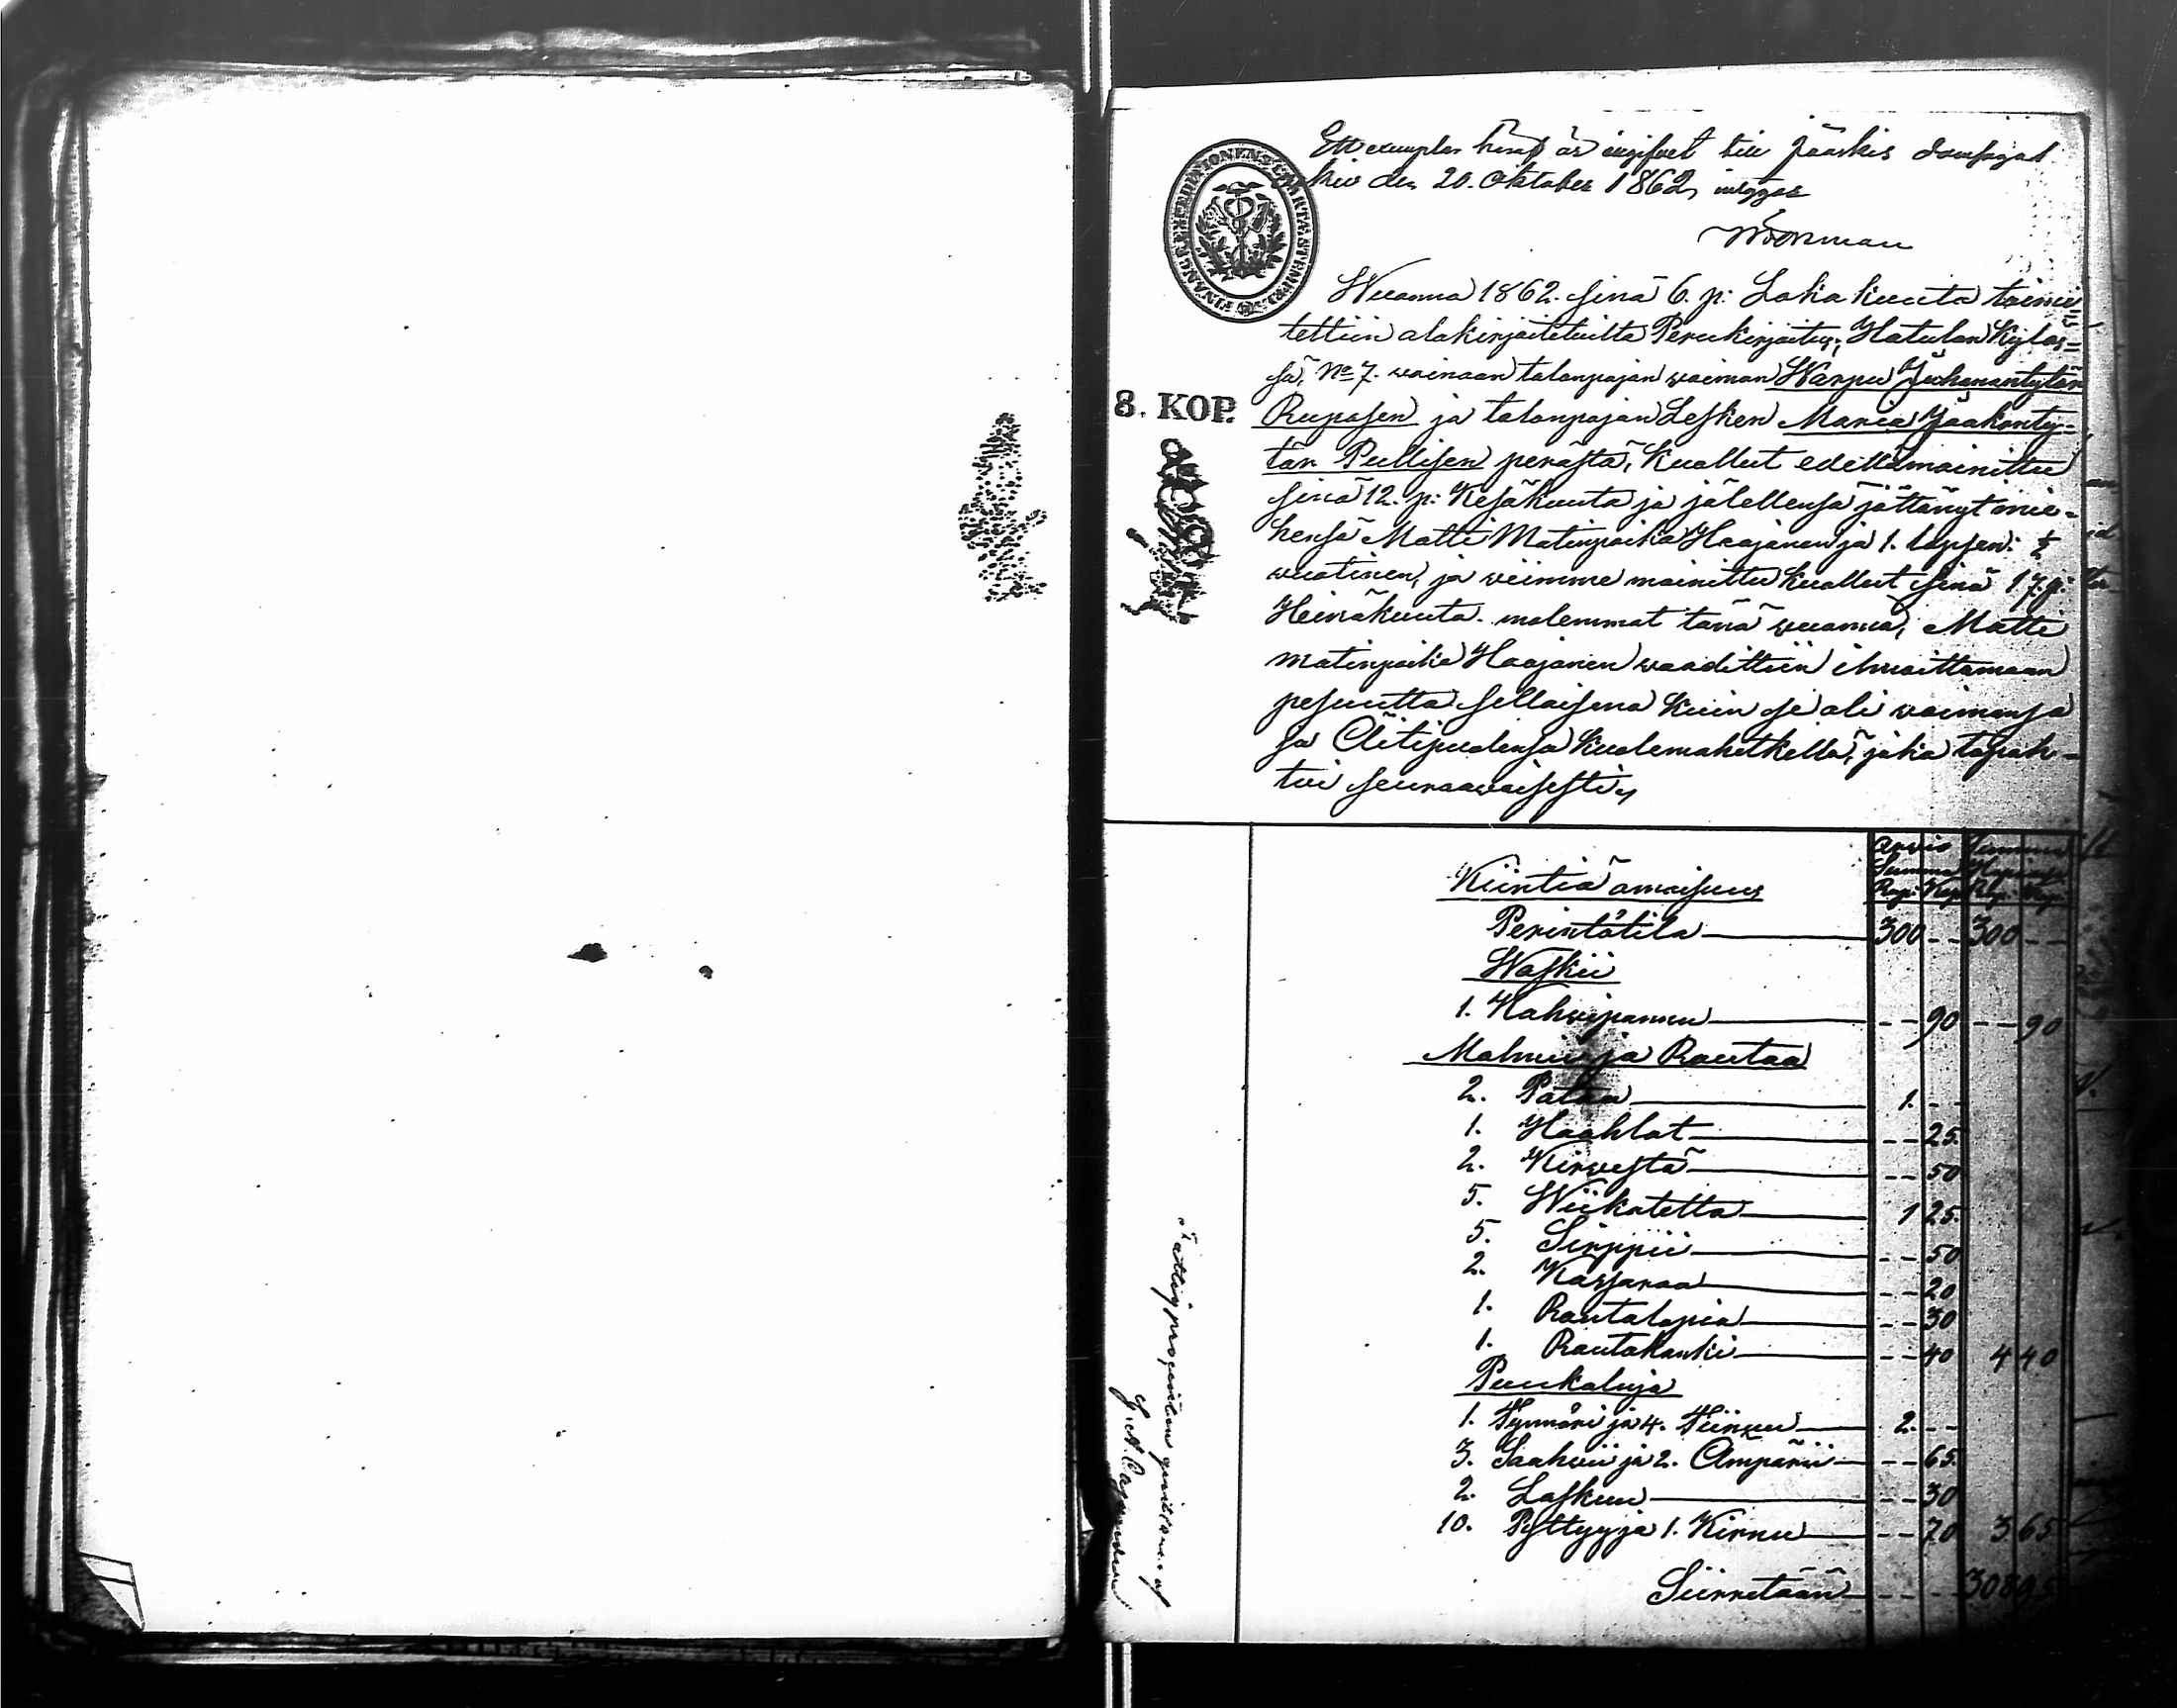 Ett exemplar häraf är ingifvet till Jääskis domsaga
den 20. Oktober 1862, intygar
FINANCE EXPEDITIONENS CHARTÆ STEMPEL
8. KOP.
Wuonna 1862. sinä 6. p: Lokakuuta toimi=
tettiin alakirjoitetuilta Perukirjoitus, Hatulan Kyläs=
sä, No 7. wainaan talonpojan waimon Warpu Juhanantytär
Ruposen ja talonpojan Lesken Maria Jaakonty=
tär Pullisen perästä, Kuollut edellämainittu
sinä 12. p: Kesäkuuta ja jälellensä jättänyt mie=
hensä Matti Matinpoika Haajanen ja 1. lapsen: ½
wuotinen, ja wiimme mainittu Kuollut sinä 17. p:
Heinäkuuta. molemmat tänä wuonna, Matti
matinpoika Haajanen waadittiin ilmoittamaan
pesuutta sellaisena kuin se oli waimonsa
ja Äitipuolensa Kuolemahetkellä, joka tapah=
tui seuraawaisesti,
Arwio Summa
Summa Hopiassa
Rup. Kop. Rup. Kop.
Kiintiä omaisuus
Perintötila 300 -- 300 --
Waskii
1. Kahwipannu -- 90 -- 90
Malmia ja Rautaa
2. Pataa 1. --
1. Haahlat -- 25.
2. Kirwestä -- 50
5. Wiikatetta 1 25.
5. Sirppii -- 50
2. Kassaraa -- 20
1. Rautalapia -- 30
1. Rautakanki -- 40 4 40
Puukaluja
1. Tynnöri ja 4. Tiinuu 2. --
3. Saahvii ja 2. Ämpärii -- 65.
2. Laskuu -- 30
10. Pyttyy ja 1. Kirnu -- 70 3 65
Siirretään -- -- 308 95
Fattigprocenten qvitteras af